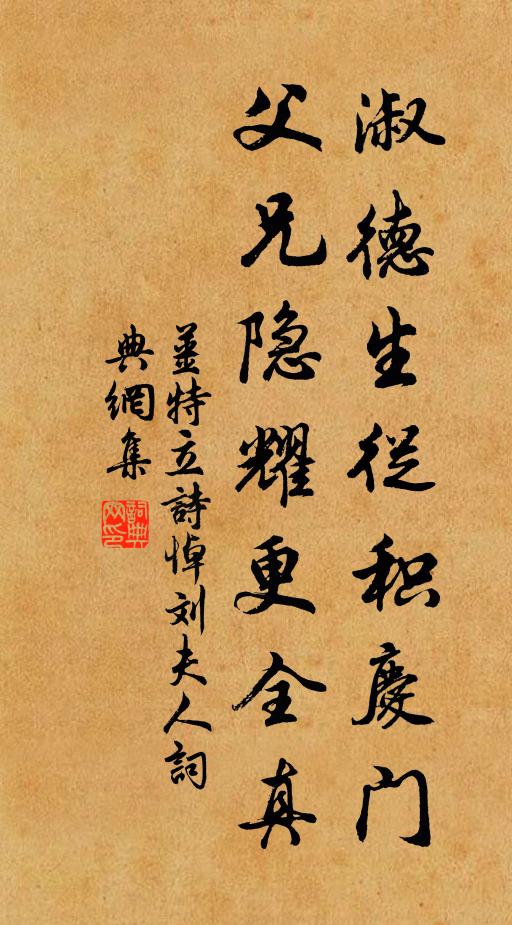 淑德生從积慶门
父兄隐耀更全真
薑特立詩悼刘夫人詞
典網集
詞典网印